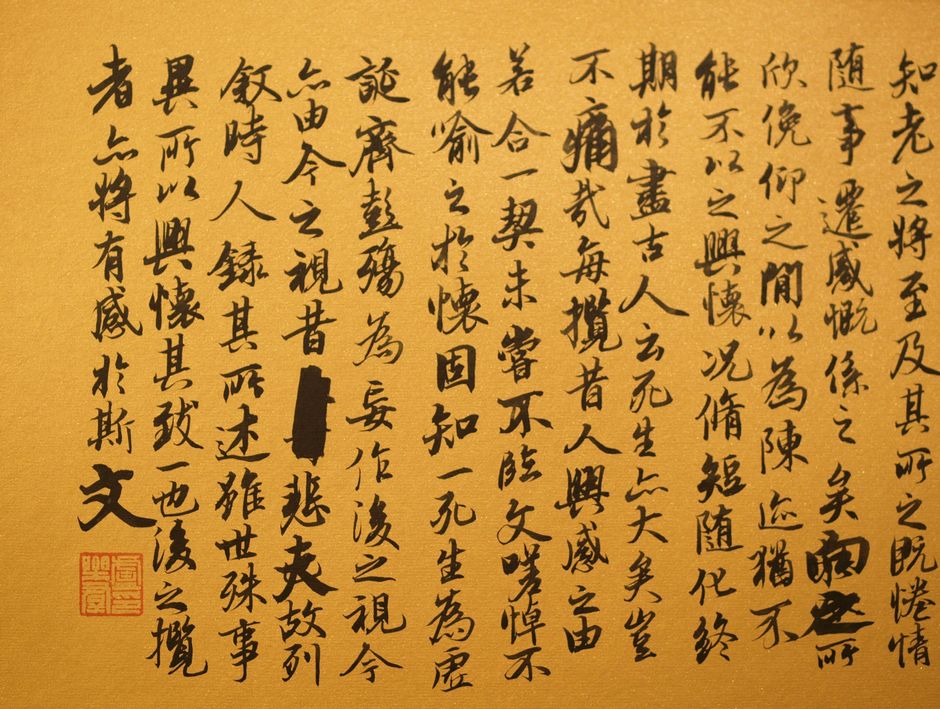 知老之將至及其所之既惓情
随事遷感慨係之矣向之所
欣俛仰之閒以為陳迹猶不
能不以之興懷况脩短随化終
期於盡古人云死生亦大矣豈
不痛哉每攬昔人興感之由
若合一契未嘗不臨文嗟悼不
能喻之於懷固知一死生為虛
誕齊彭殤為妄作後之視今
亦由今之視昔悲夫故列
叙時人録其所述雖世殊事
異所以興懷其致一也後之攬
者亦將有感於斯文